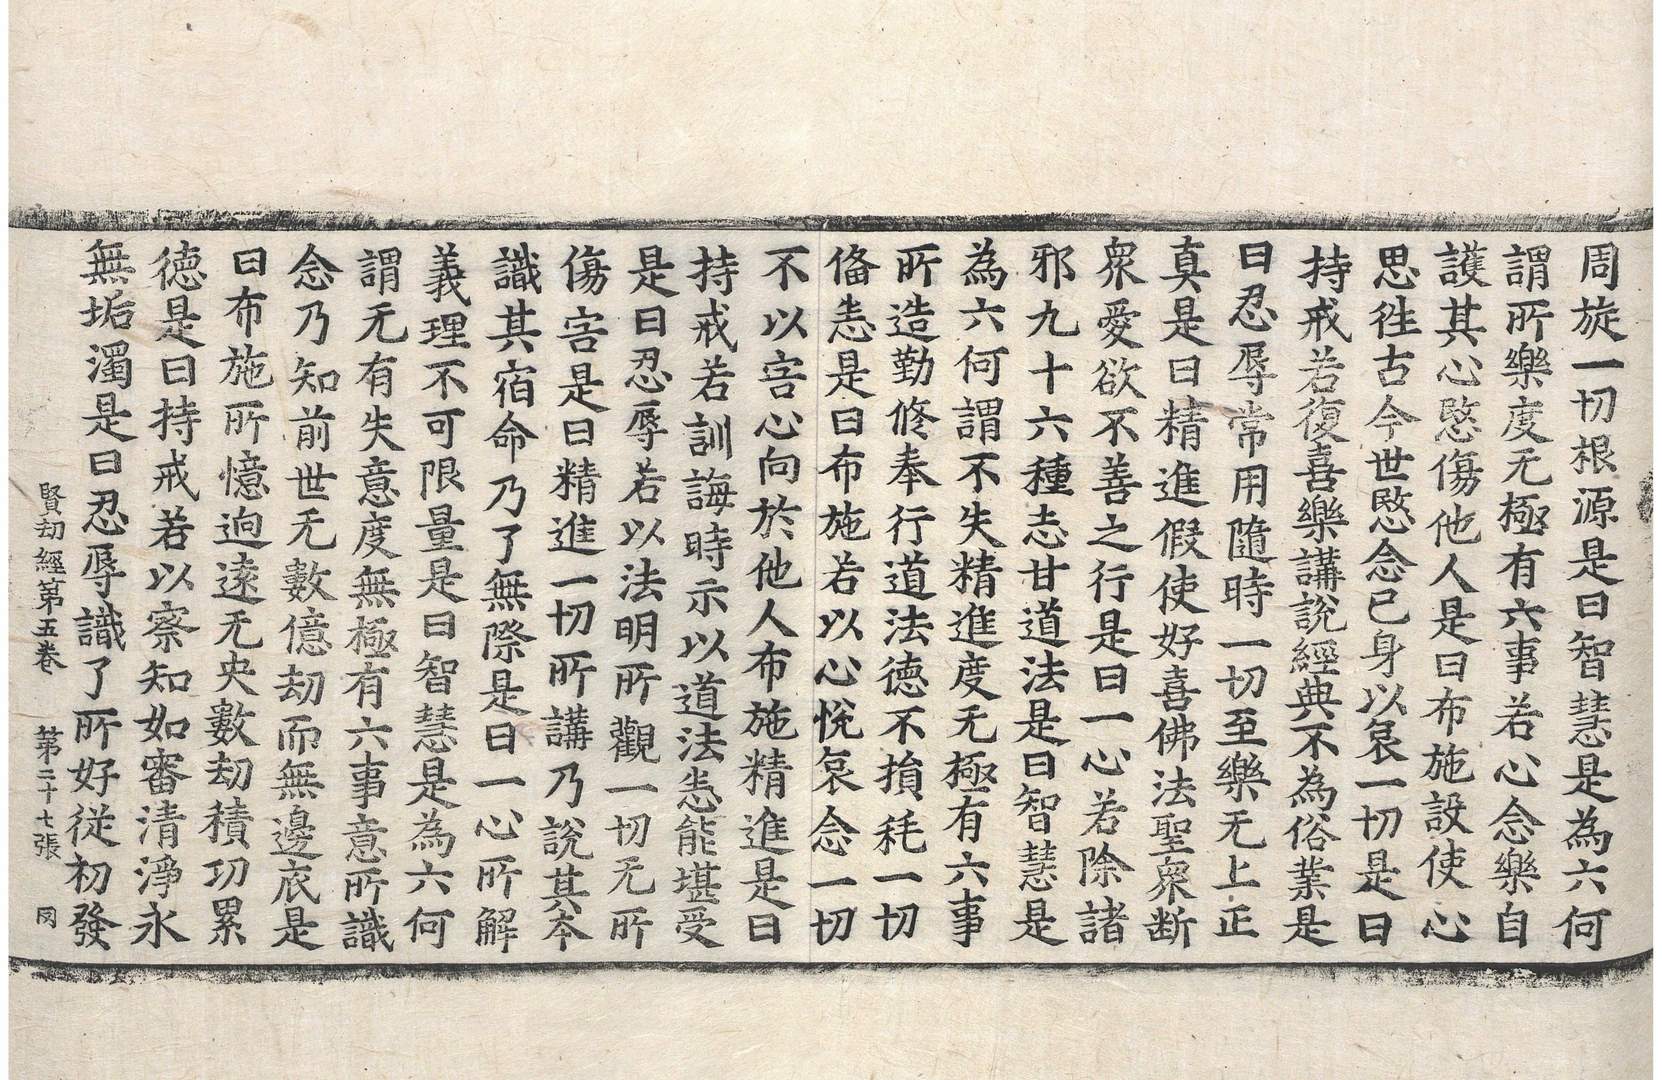 周旋一切根源是曰智慧是為六何
謂所樂度无極有六事若心念樂自
護其心愍傷他人是曰布施設使心
思徃古今世愍念已身以哀一切是曰
持戒若復喜樂講說經典不為俗業是
曰忍辱常用隨時一切至樂无上正
真是曰精進假使好喜佛法聖衆断
衆愛欲不善之行是曰一心若除諸
邪九十六種志甘道法是曰智慧是
為六何謂不失精進度无極有六事
所造勤修奉行道法德不損耗一切
俻恚是曰布施若以心悅哀念一切
不以害心向於他人布施精進是曰
持戒若訓誨時示以道法恚能堪受
是曰忍辱若以法明所觀一切无所
傷害是曰精進一切所講乃說其夲
識其宿命乃了無際是曰一心所解
義理不可限量是曰智慧是為六何
謂无有失意度無極有六事意所識
念乃知前世无數億劫而無邊底是
曰布施所憶逈遠无央數劫積功累
德是曰持戒若以察知如審清淨永
無垢濁是曰忍辱識了所好従初發
賢劫經第五卷 第二十七張 罔